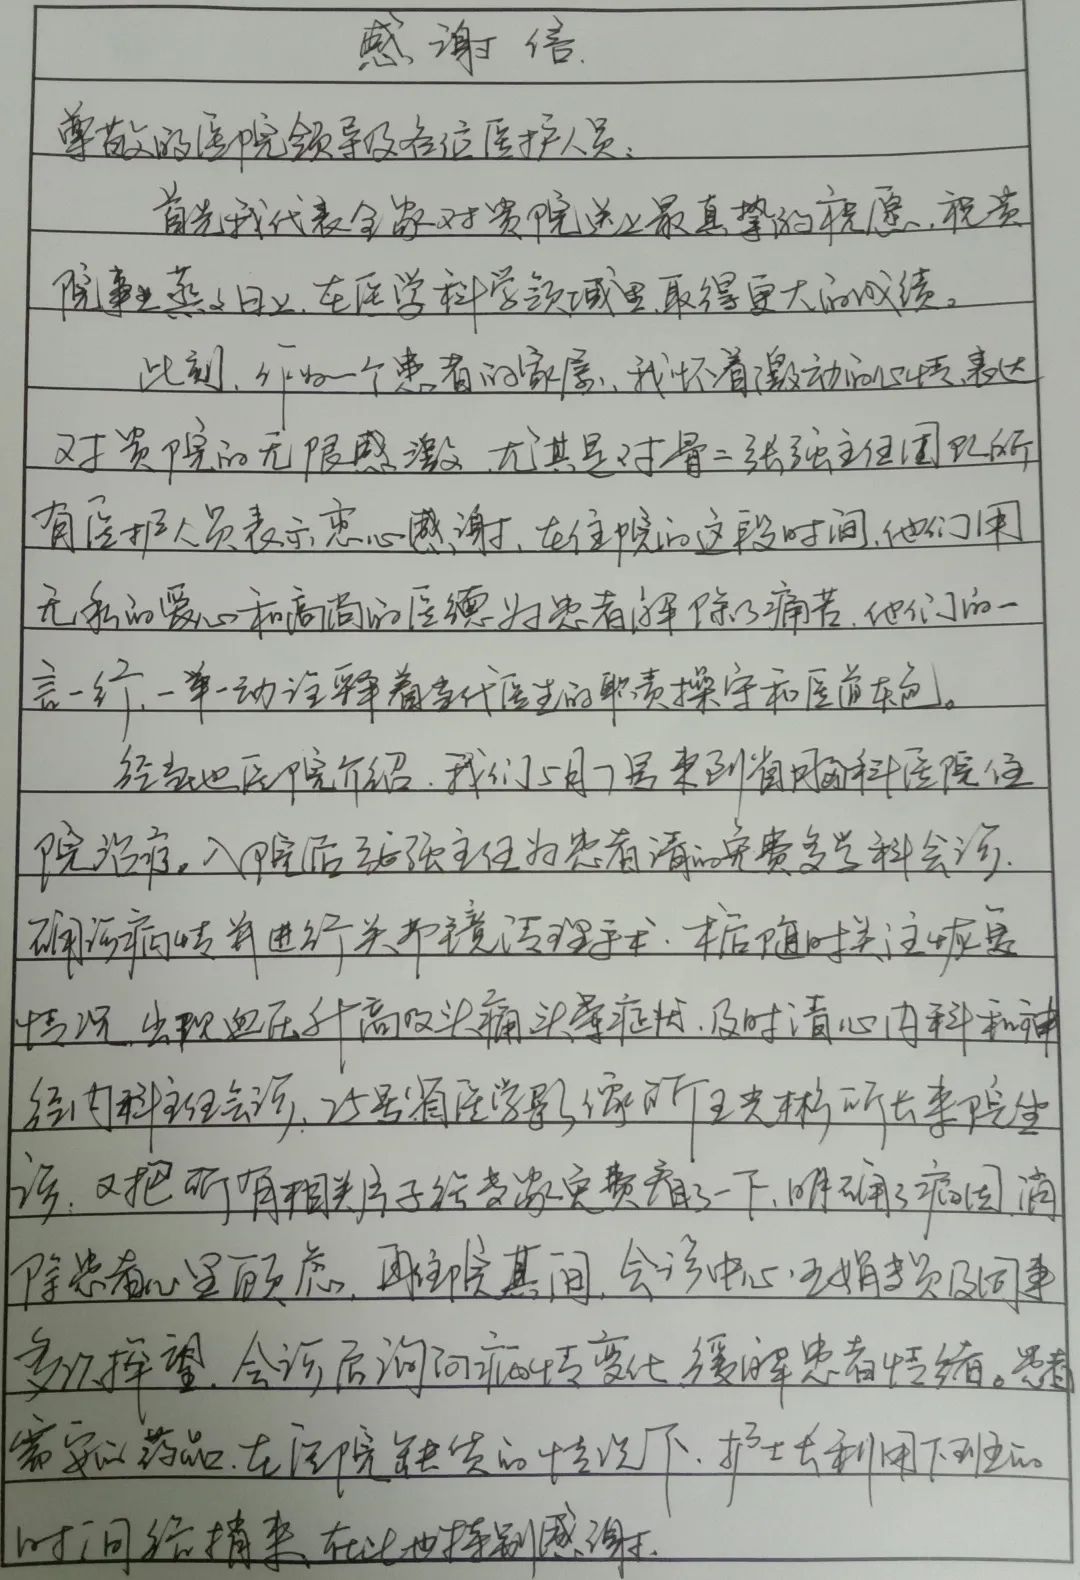 感谢信.
尊敬的医院领导及各位医护人员:
首先我代表全家对贵院送上最真挚的祝愿,祝贵
院事业蒸蒸日上,在医学科学领域里取得更大的成绩。
此刻,作为一个患者的家属,我怀着激动的心情,表达
对贵院的无限感激,尤其是对骨二张强主任团队所
有医护人员表示衷心感谢,在住院的这段时间,他们用
无私的爱心和高尚的医德为患者解除了痛苦,他们的一
言一行,一举一动诠释着当代医生的职责操守和医道本色。
经当地医院介绍,我们5月7号来到省脑科医院住
院治疗。入院后张强主任为患者请的免费多学科会诊,
确诊病情并进行关节镜清理手术.术后随时关注恢复
情况,出现血压升高及头痛头晕症状,及时请心内科和神
经内科主任会诊,25号省医学影像所王光彬所长来院坐
诊,又把所有相关片子给大家免费看了一下,明确了病因,消
除患者心里顾虑,再住院其间,会诊中心王娟专员及同事
多次探望,会诊后询问病情变化,缓解患者情绪。患者
需要的药品,在医院缺货的情况下,护士长利用下班的
时间给捎来,在此也特别感谢.